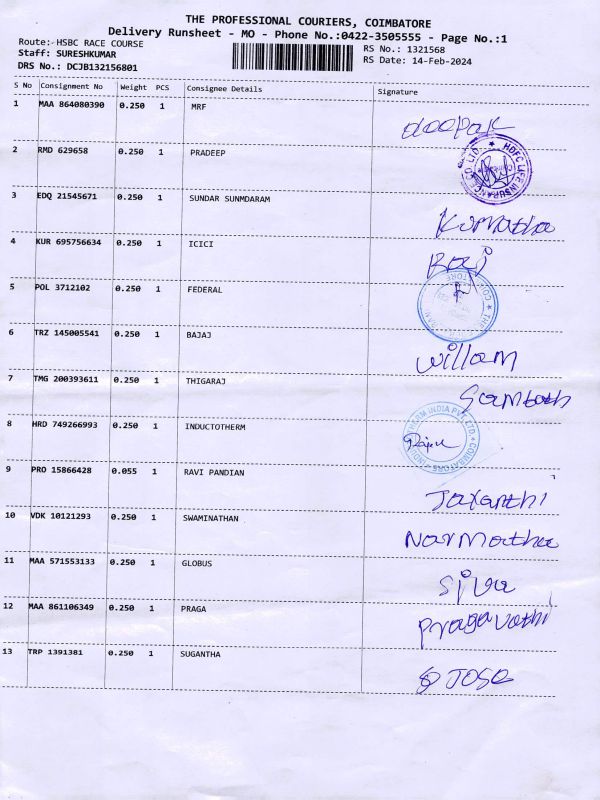 THE PROFESSIONAL COURIERS, COIMBATORE
Delivery Runsheet - MO - Phone No.:0422-3505555 - Page No.:1
Route:- HSBC RACE COURSE RS No.: 1321568
Staff: SURESHKUMAR RS Date: 14-Feb-2024
DRS No.: DCJB132156801
S No Consignment No Weight PCS Consignee Details Signature
1 MAA 864080390 0.250 1 MRF
deepak
2 RMD 629658 0.250 1 PRADEEP
HDFC LIFE INSURANCE CO. LTD.
3 EDQ 21545671 0.250 1 SUNDAR SUNMDARAM
Komatha
4 KUR 695756634 0.250 1 ICICI
Raj
5 POL 3712102 0.250 1 FEDERAL
6 TRZ 145005541 0.250 1 BAJAJ
Willam
7 TMG 200393611 0.250 1 THIGARAJ
Santosh
8 HRD 749266993 0.250 1 INDUCTOTHERM
INDUCTOTHERM INDIA PVT. LTD. COIMBATORE
9 PRO 15866428 0.055 1 RAVI PANDIAN
Jayanthi
10 VDK 10121293 0.250 1 SWAMINATHAN
Narmatha
11 MAA 571553133 0.250 1 GLOBUS
Siva
12 MAA 861106349 0.250 1 PRAGA
Pragavathi
13 TRP 1391381 0.250 1 SUGANTHA
JOSE